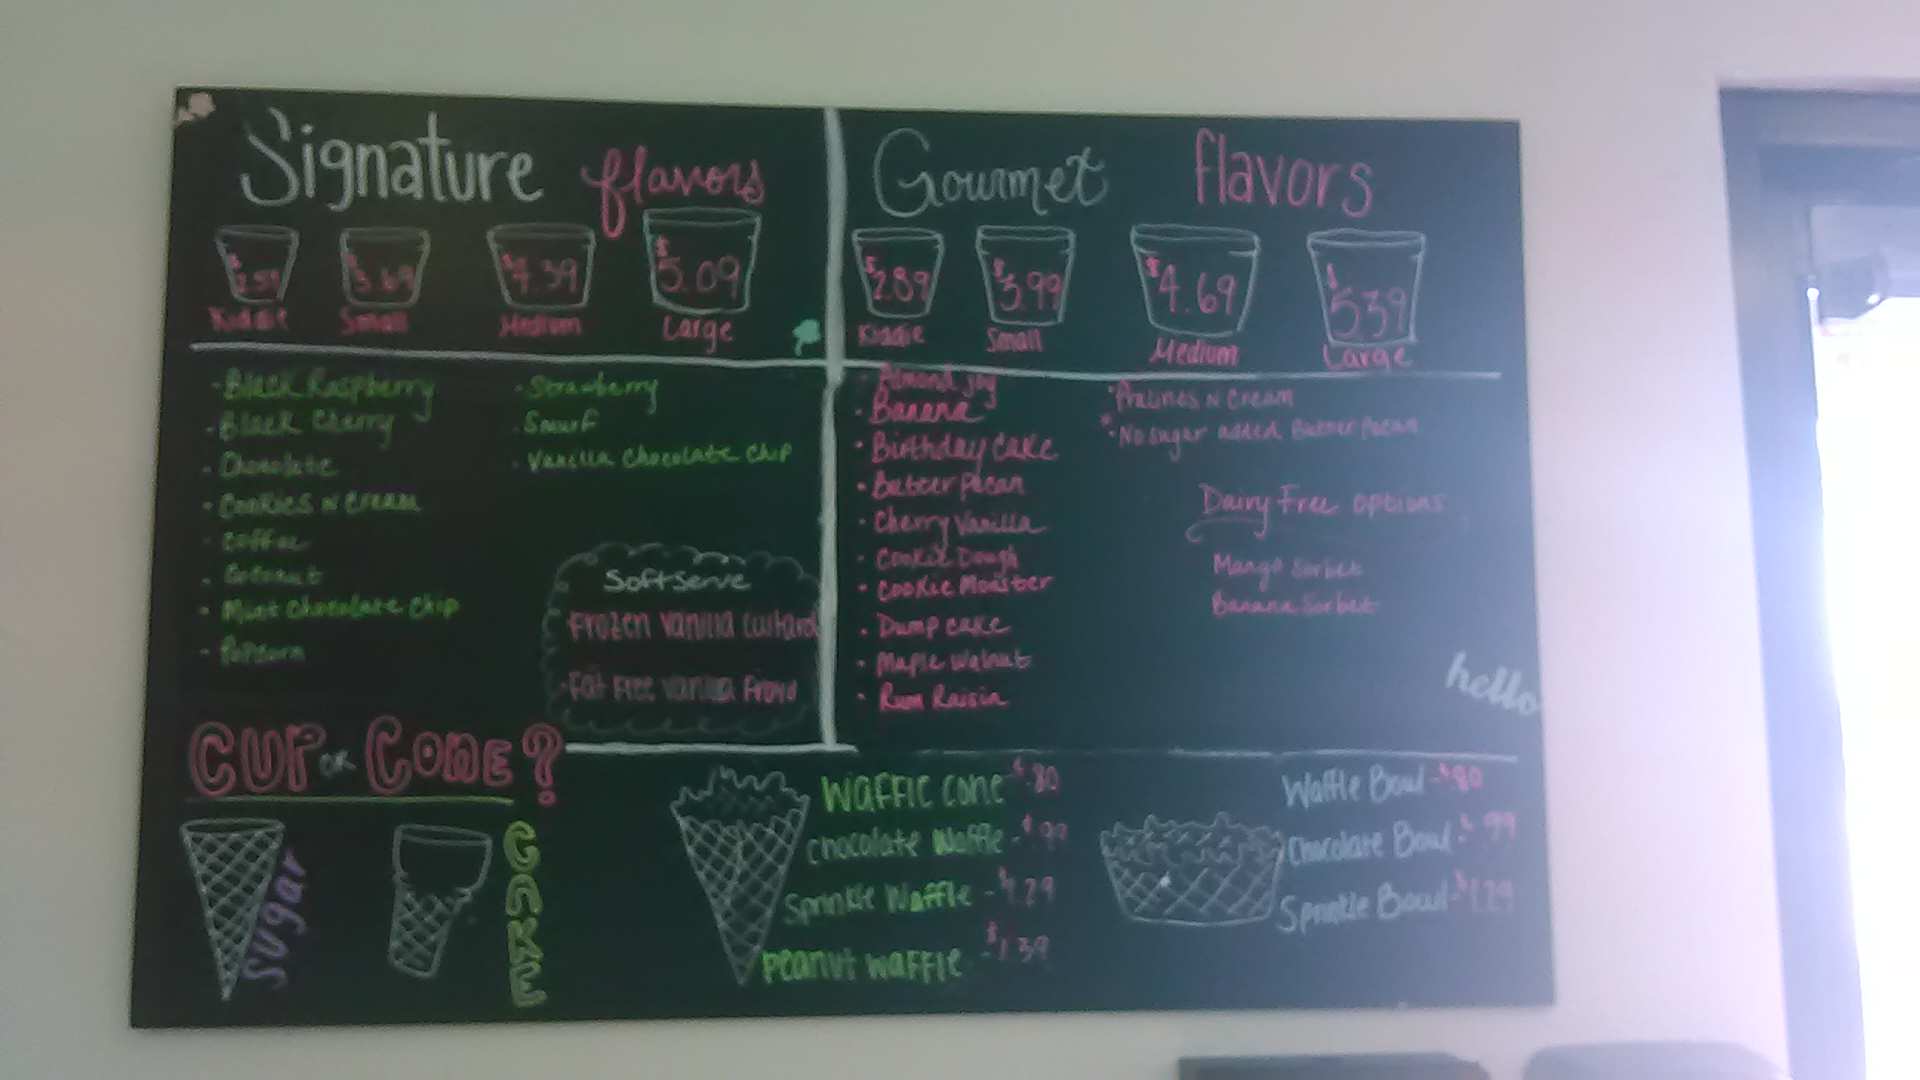 Signature flavors
$2.59 $3.69 $4.39 $5.09
Kiddie Small Medium Large
- Black Raspberry
- Black Cherry
- Chocolate
- Cookies N Cream
- Coffee
- Coconut
- Mint Chocolate Chip
- Popcorn
- Strawberry
- Smurf
- Vanilla Chocolate Chip
Softserve
Frozen Vanilla Custard
-Fat Free Vanilla Froyo
Gourmet flavors
$2.89 $3.99 $4.69 $5.39
Kiddie Small Medium Large
- Almond Joy
- Banana
- Birthday Cake
- Butter Pecan
- Cherry Vanilla
- Cookie Dough
- Cookie Monster
- Dump Cake
- Maple Walnut
- Rum Raisin
- Pralines N Cream
*- No sugar added Butter Pecan
Dairy Free options
Mango Sorbet
Banana Sorbet
hello
CUP OR CONE?
SUgar
CAKE
WAFFLE CONE -$.80
Chocolate Waffle -$.99
Sprinkle Waffle -$1.29
Peanut Waffle -$1.39
Waffle Bowl -$.80
Chocolate Bowl -$.99
Sprinkle Bowl -$1.29